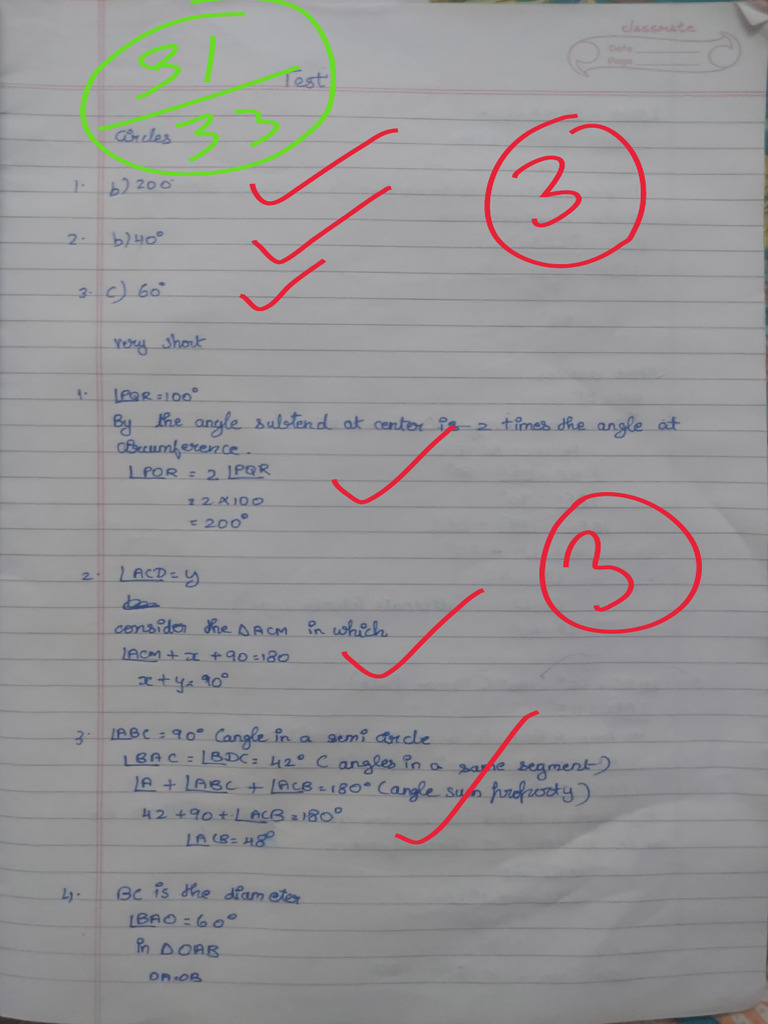 classmate
Date
Page
31
33
Test
Circles
3
1. b) 200°
2. b) 40°
3. c) 60°
very short
1. ∠PQR = 100°
By the angle subtend at center is 2 times the angle at
circumference.
∠POR = 2 ∠PQR
= 2 × 100
= 200°
3
2. ∠ACD = y
consider the △ACM in which
∠ACM + x + 90 = 180
x + y = 90°
3. ∠ABC = 90° (angle in a semi circle
∠BAC = ∠BDC = 42° (angles in a same segment)
∠A + ∠ABC + ∠ACB = 180° (angle sum property)
42 + 90 + ∠ACB = 180°
∠ACB = 48°
4. BC is the diameter
∠BAO = 60°
in △OAB
OA = OB